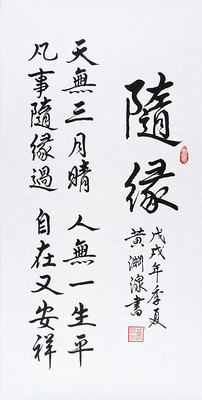 隨緣
戊戌年季夏
黃淵書
天無三月晴 人無一生平
凡事隨緣過 自在又安祥